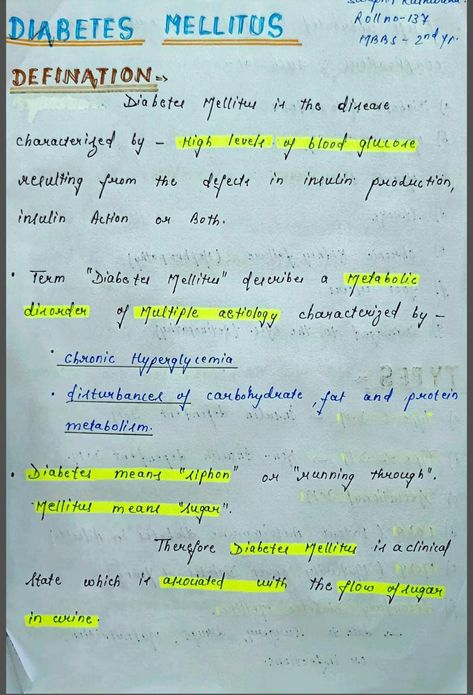 DIABETES MELLITUS
Roll no-137
MBBS - 2nd yr.
DEFINATION :-
Diabetes Mellitus is the disease
characterized by - High levels of blood glucose
resulting from the defects in insulin production,
insulin Action or Both.
• Term "Diabetes Mellitus" describes a Metabolic
disorder of Multiple aetiology characterized by -
• Chronic Hyperglycemia
• disturbances of carbohydrate, fat and protein
metabolism.
• Diabetes means "siphon" or "running through".
Mellitus means "sugar".
Therefore Diabetes Mellitus is a clinical
state which is associated with the flow of sugar
in urine.